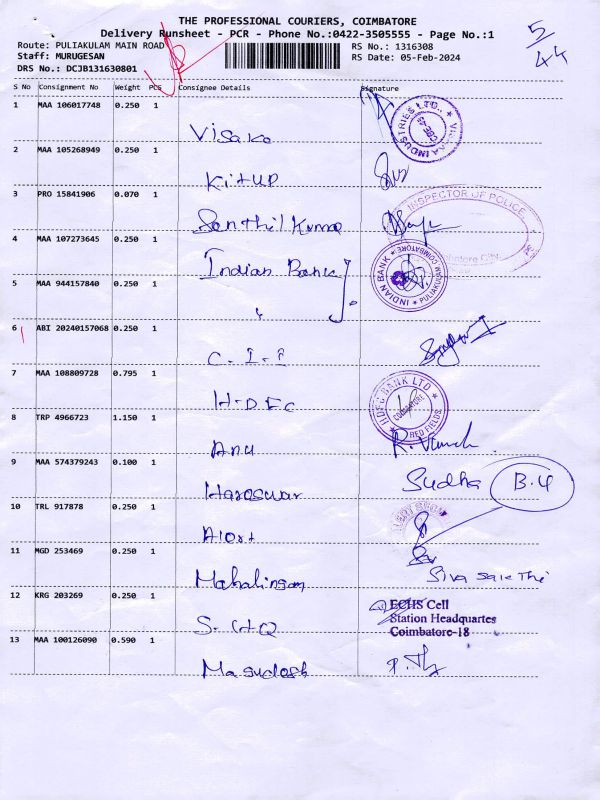 THE PROFESSIONAL COURIERS, COIMBATORE
Delivery Runsheet - PCR - Phone No.:0422-3505555 - Page No.:1
Route: PULIAKULAM MAIN ROAD
RS No.: 1316308
Staff: MURUGESAN
RS Date: 05-Feb-2024
DRS No.: DCJB131630801
5/44
S No Consignment No Weight PCS Consignee Details Signature
1 MAA 106017748 0.250 1
Visaka
2 MAA 105268949 0.250 1
3 PRO 15841906 0.070 1
Senthil Kumar
INSPECTOR OF POLICE
Coimbatore City
4 MAA 107273645 0.250 1
Indian Bank
INDIAN BANK PULIAKULAM COIMBATORE
5 MAA 944157840 0.250 1
"
6 ABI 20240157068 0.250 1
C.I.I
7 MAA 108809728 0.795 1
HDFC
HDFC BANK LTD
COIMBATORE
RED FIELDS
8 TRP 4966723 1.150 1
Anu
9 MAA 574379243 0.100 1
Sudha B.4
10 TRL 917878 0.250 1
Alert
11 MGD 253469 0.250 1
Mahalingam
12 KRG 203269 0.250 1
S. HQ
ECHS Cell
Station Headquartes
Coimbatore-18
13 MAA 100126090 0.590 1